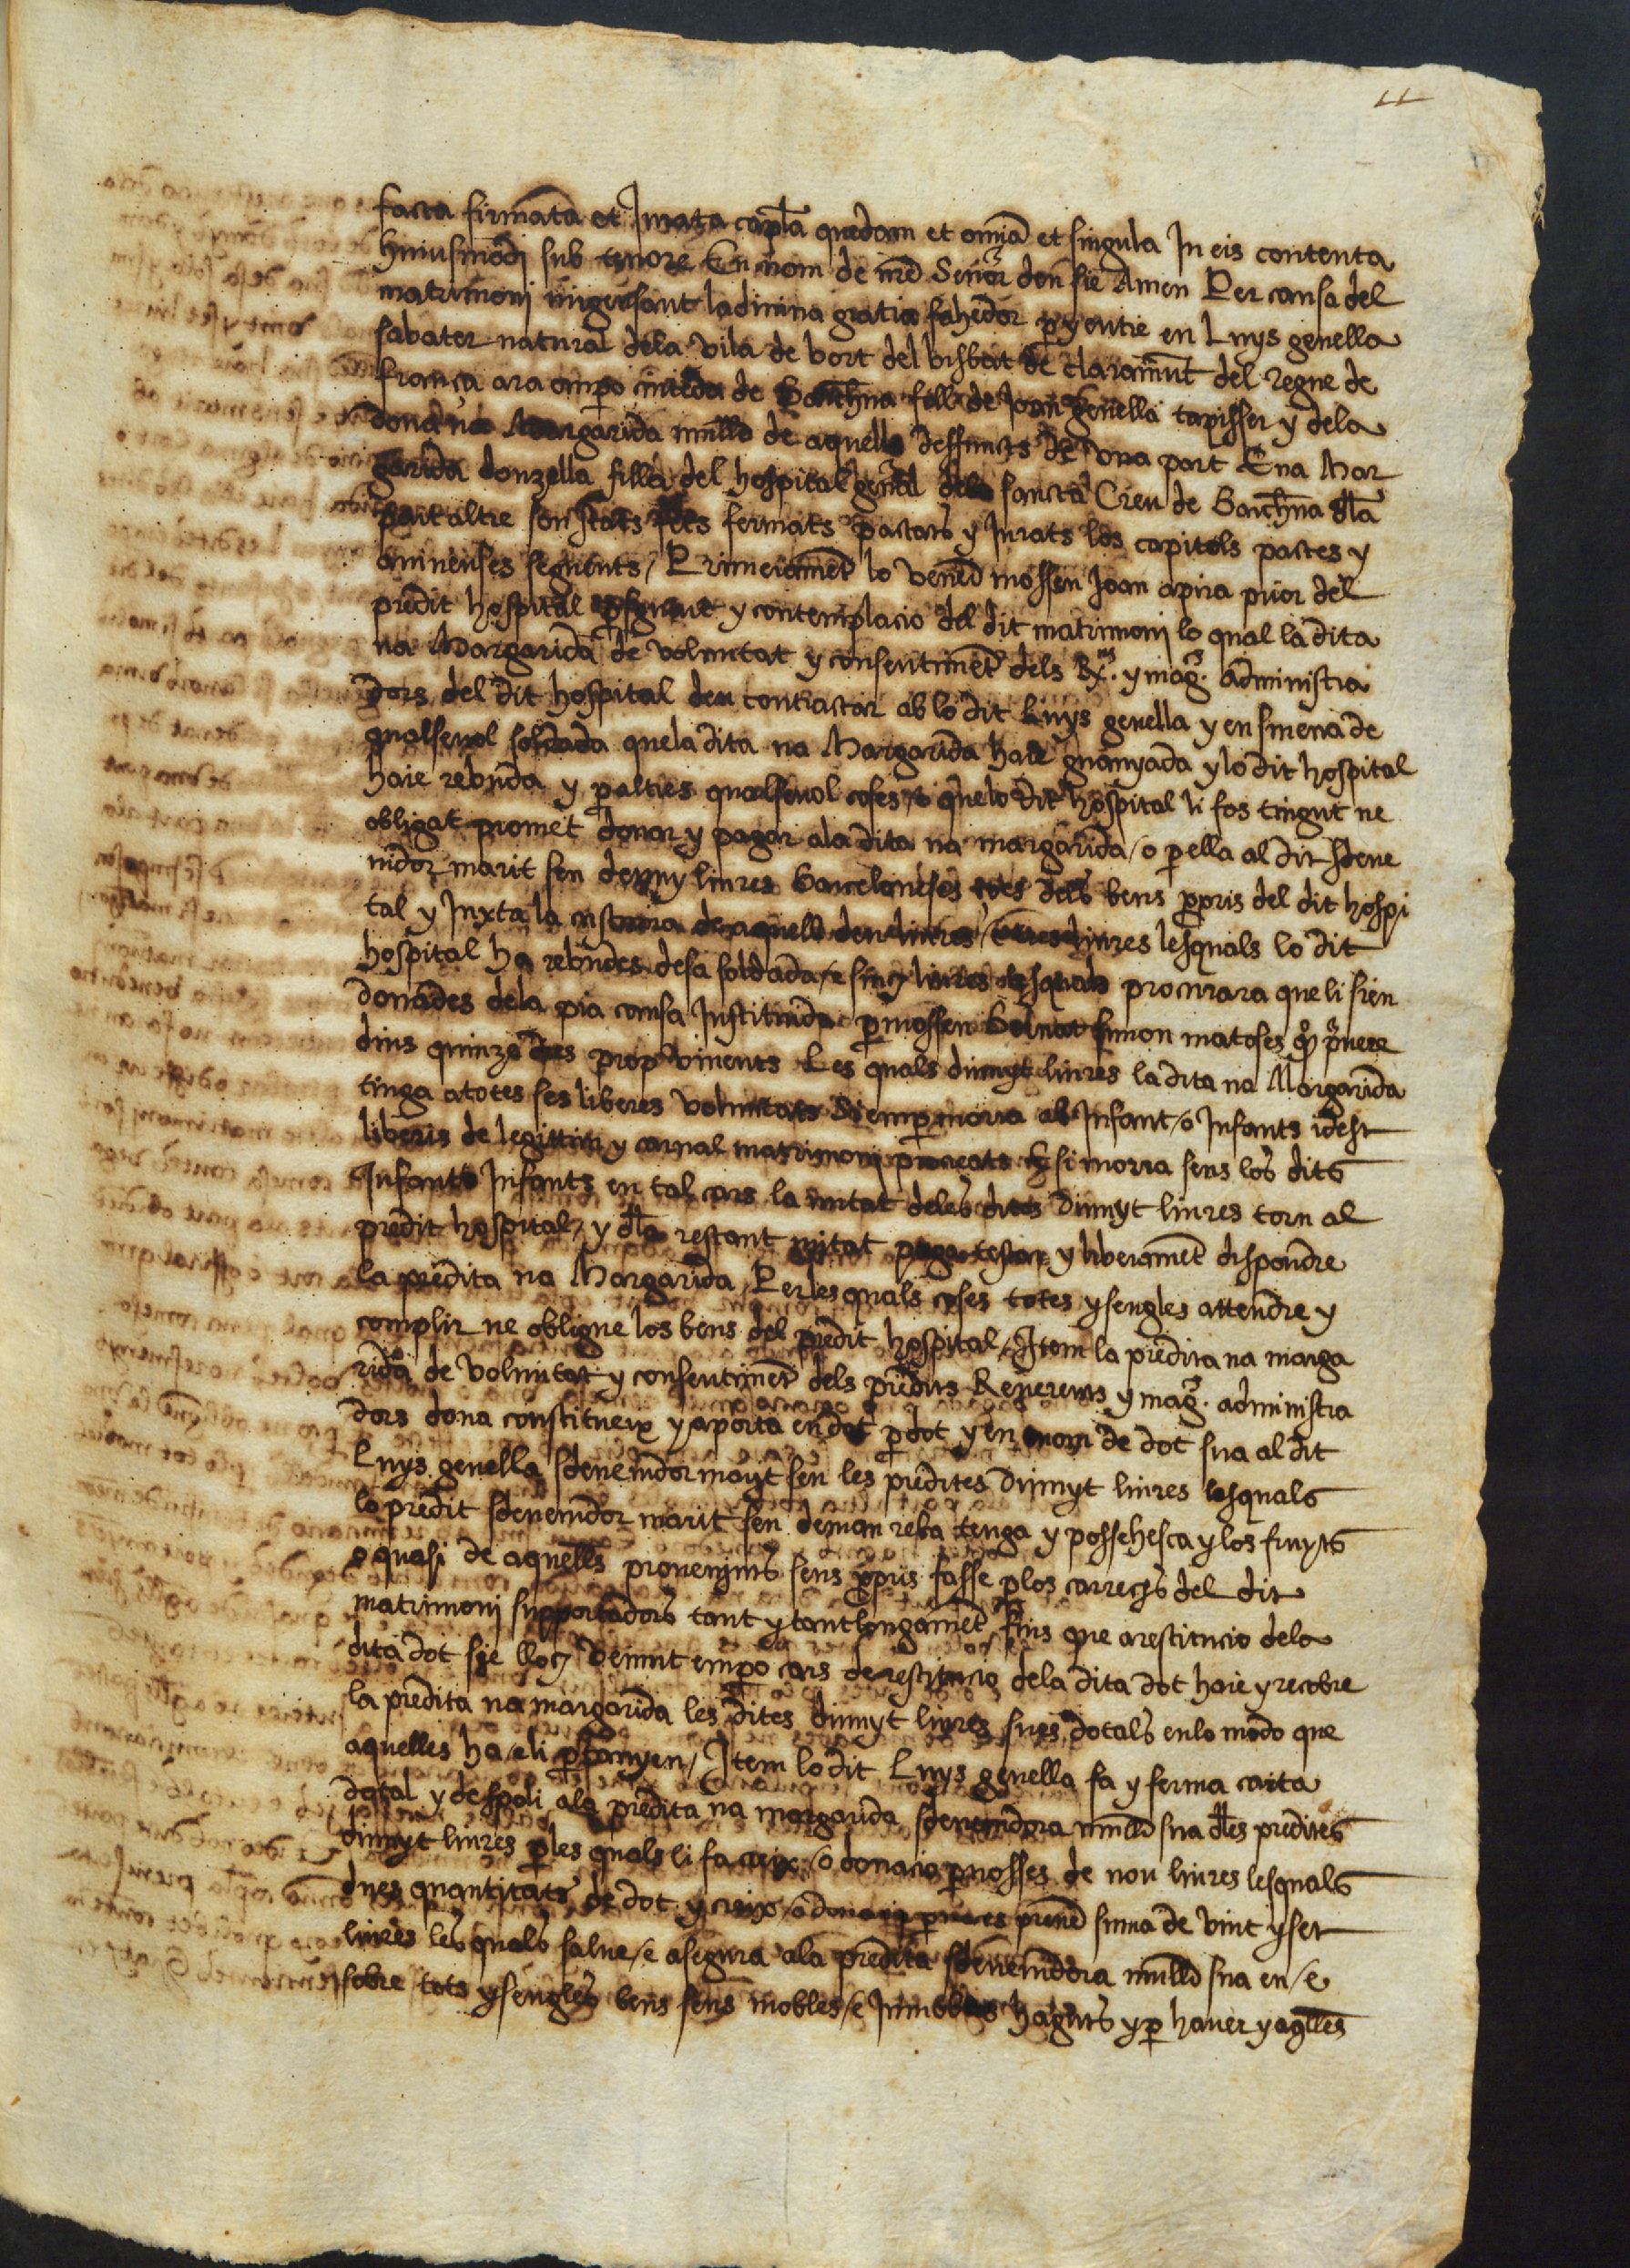 11
facta firmata et Jurata capla quedam et omnia et singula In eis contenta
huiusmodj sub tenore En nom de nre Senor deu sie Amen Per causa del
matrimoni migensant la diuina gratia fahedor p y entre en Luys genella
sabater natural dela vila de bort del bisbat de claramunt del regne de
frança ara empo ciuteda de Barchna fill de Joan genella tapisser y dela
dona na Margarida mulle de aquell deffuncts de vna part E na Mar
garida donzella filla del hospital genal dela sancta Creu de Barchna dla
part altre son stats fets fermats pactats y Jurats los capitols pactes y
auinenses seguents / Primeramet lo vened mossen Joan apira prior del
predit hospital y contemplacio del dit matrimonj lo qual la dita
na Margarida de voluntat y consentimet dels Rx. y mag. administra
dors del dit hospital deu contractar ab lo dit Luys genella y en smena de
qualseuol soldada que la dita na Margarida haie guanyada y lo dit hospital
haie rebuda y p altres qualseuol coses que lo dit hospital li fos tingut ne
obligat promet donar y pagar ala dita na margarida / o p ella al dit sdeue
nidor marit seu lliures Barceloneses dels bens ppris del dit hospi
tal y Juxta la deu lliures / e tres lliures les quals lo dit
hospital ha rebudes de sa soldada / e sinch lliures les quals procurara que li sien
donades dela pia causa Instituida p mossen simon matoses
dins quinze dies prop vinents Les quals diuuyt lliures la dita na Margarida
tinga a totes ses liberes voluntats Si emp morra ab Infant / o Infants idest
liberis de legittim y carnal matrimonj procreats E si morra sens los dits
Infant o Infants en tal cars la mitat deles dites Diuuyt lliures torn al
predit hospital / y dla restant mitat puga testar y liberamet dispondre
la predita na Margarida Per les quals coses totes y sengles attendre y
complir ne obligue los bens del predit hospital / Item la predita na marga
rida de voluntat y consentimet dels predits Reuerents y mag. administra
dors dona constitueix y aporta en dot p dot y en nom de dot sua al dit
Luys genella sdeuenidor mayt seu les predites Diuuyt lliures les quals
lo predit sdeuenidor marit seu deman reba tenga y possehesca y los fruyts
o quasi de aquells prouenints seus ppris fasse p los carrechs del dit
matrimonj supportadors tant y tant longamet fins que a restitucio dela
dita dot sie lloch Vinint empo cars de restitucio dela dita dot haie y recobre
la predita na margarida les dites diuuyt lliures sues dotals en lo modo que
aquelles ha / e li ptanyen / Item lo dit Luys genella fa y ferma carta
dotal y de spoli ala predita na margarida sdeuenidora mulle sua dles predites
diuuyt lliures p les quals li fa creix / o donacio p nosses de nou lliures les quals
dues quantitats de dot y creix / o donacio p prened suma de vint y set
lliures les quals salue / e asegura ala predita sdeuenidora mulle sua en / e
sobre tots y sengles bens seus mobles / e Jmmobles haguts y p hauer y aqlles